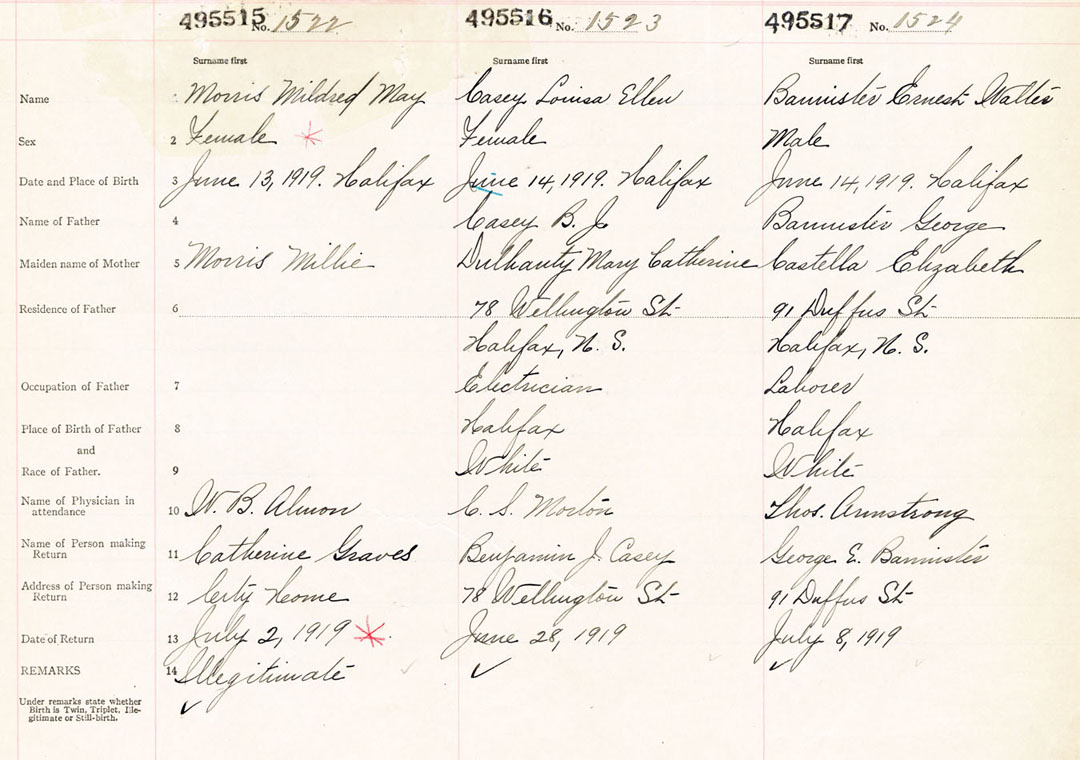 495515 No. 1522 495516 No. 1523 495517 No. 1524
Surname first Surname first Surname first
Name Morris Mildred May Casey Louisa Ellen Bannister Ernest Walter
Sex 2 Female Female Male
Date and Place of Birth 3 June 13, 1919. Halifax June 14, 1919. Halifax June 14, 1919. Halifax
Name of Father 4 Casey B. J. Bannister George
Maiden name of Mother 5 Morris Millie Dulhanty Mary Catherine Castella Elizabeth
Residence of Father 6 78 Wellington St 91 Duffus St
Halifax, N. S. Halifax, N. S.
Occupation of Father 7 Electrician Laborer
Place of Birth of Father 8 Halifax Halifax
and
Race of Father. 9 White White
Name of Physician in
attendance 10 W. B. Almon C. S. Morton Thos. Armstrong
Name of Person making
Return 11 Catherine Graves Benjamin J. Casey George E. Bannister
Address of Person making
Return 12 City Home 78 Wellington St 91 Duffus St
Date of Return 13 July 2, 1919 June 28, 1919 July 8, 1919
REMARKS 14 Illegitimate
Under remarks state whether
Birth is Twin, Triplet, Ille-
gitimate or Still-birth.